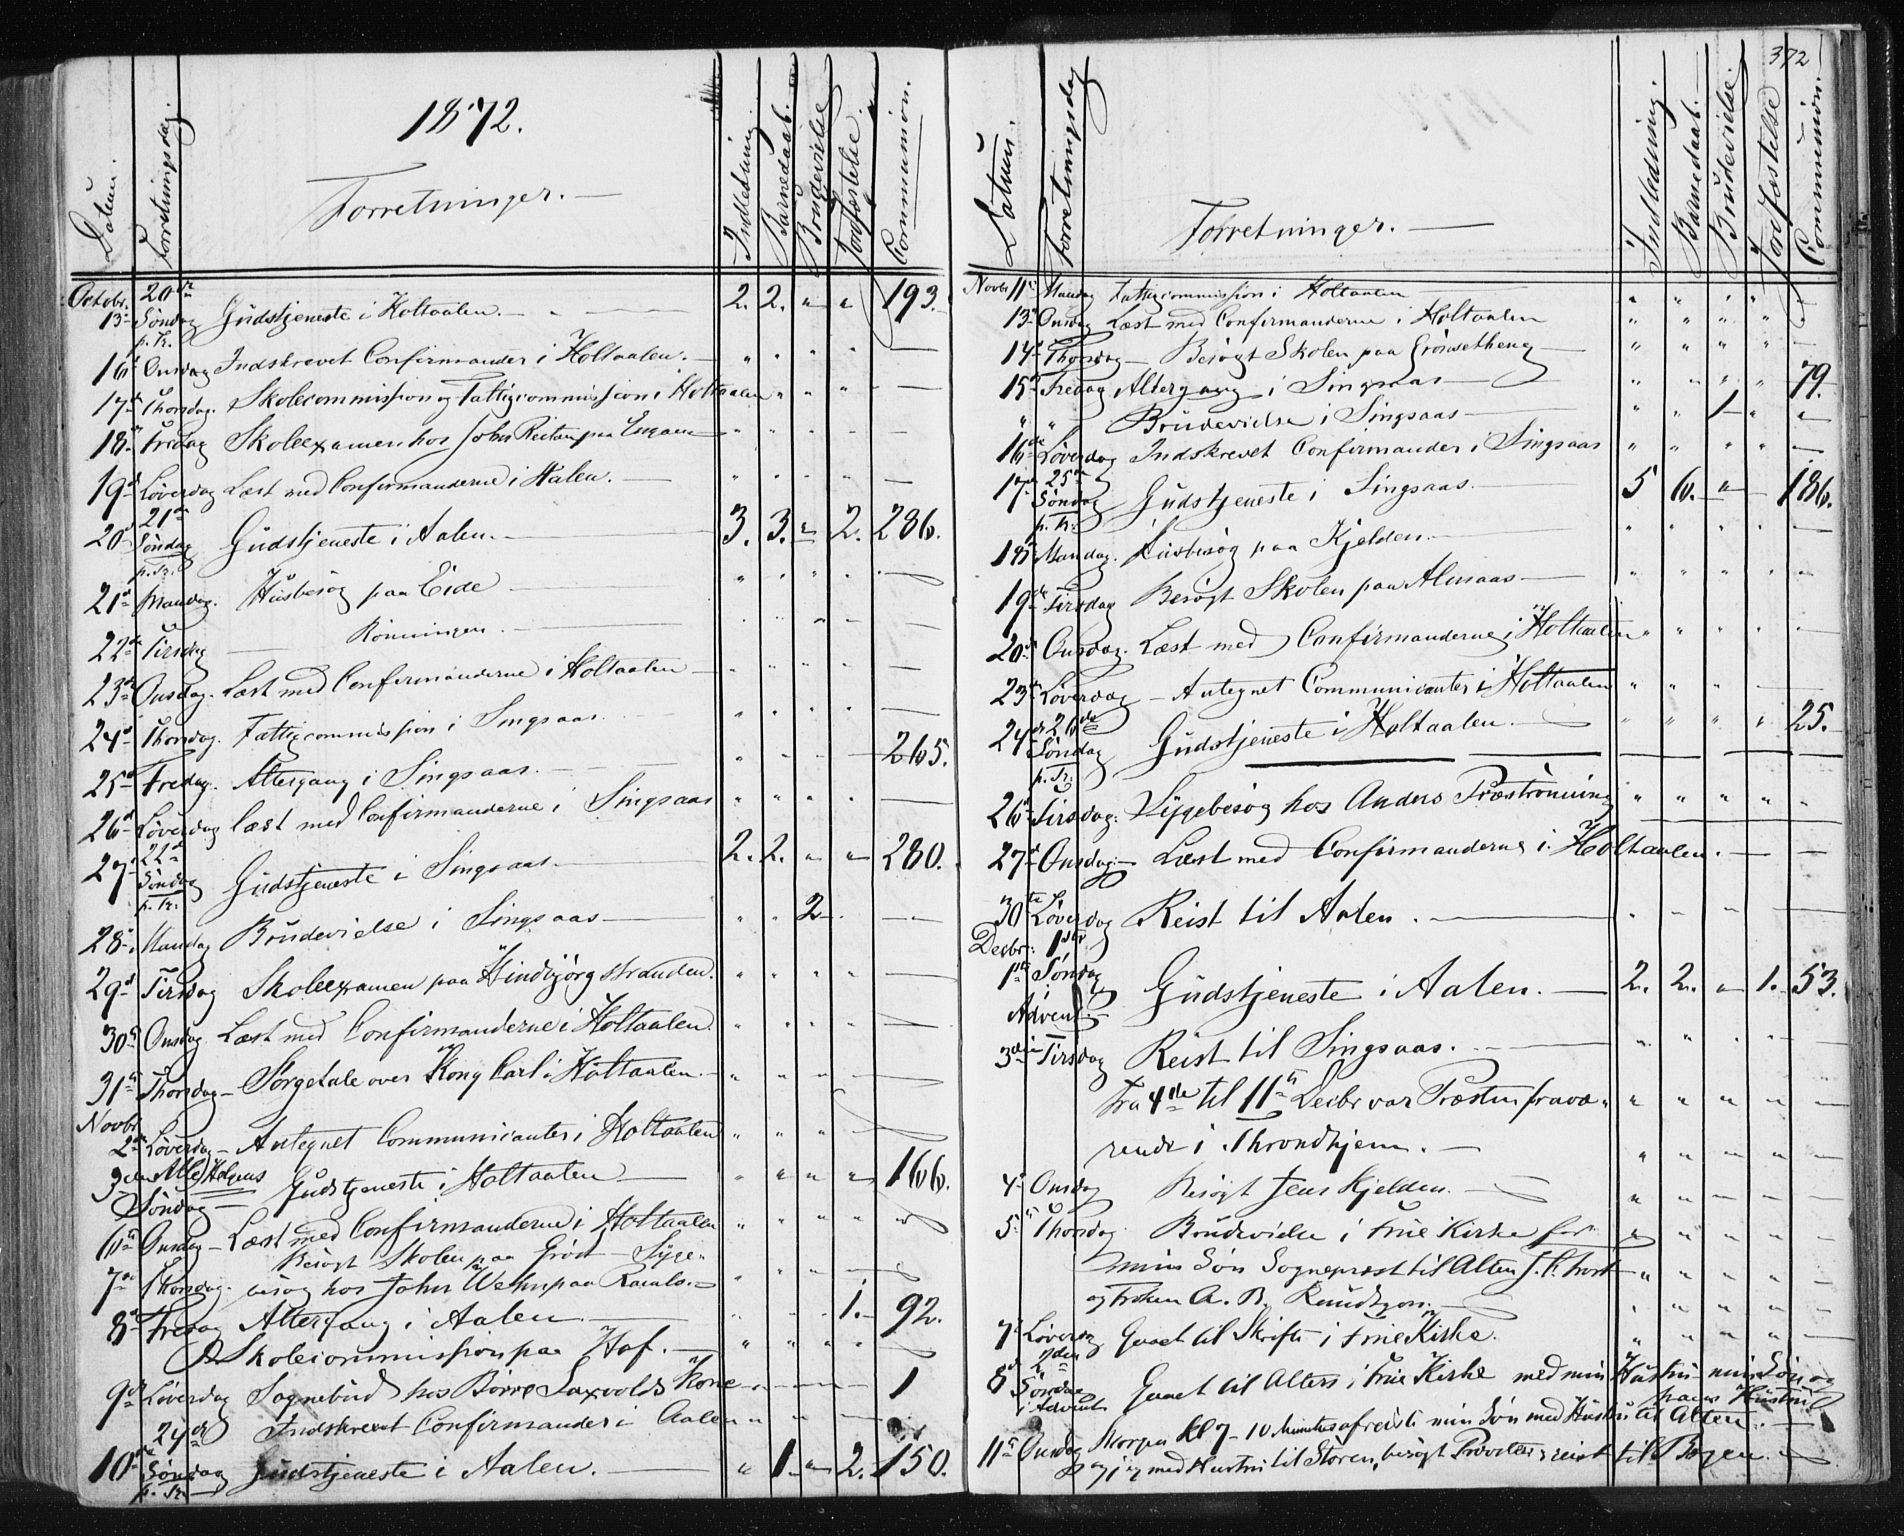 1872.
Forretninger. —
Datum. Forretningsdag. Indledning. Barnedaab. Brudevielse Jordfæstelse. Communion.
Octobr. 20de
13de Søndag p. Tr. Gudstjeneste i Holtaalen. — 2. 2. " " 193.
16de Onsdag Indskrevet Confirmander i Holtaalen. —
17de Thorsdag. Skolecommission og Fattigcommission i Holtaalen
18de Fredag Skoleexamen hos John Reitan paa
19de Løverdag Læst med Confirmanderne i Aalen. —
21de
20de Søndag p. Tr. Gudstjeneste i Aalen. — 3. 3. " 2. 286.
21de Mandag. Husbesøg paa Eide —
22de Tirsdag — Rønningen. —
23de Onsdag. Læst med Confirmanderne i Holtaalen —
24de Thorsdag. Fattigcommission i Singsaas.
25de Fredag. Altergang i Singsaas. — 265.
26de Løverdag læst med Confirmanderne i Singsaas
22de
27de Søndag p. Tr. Gudstjeneste i Singsaas. — 2. 2. " " 280.
28de Mandag Brudevielse i Singsaas — " " 2
29de Tirsdag Skoleexamen paa Hindbjørgstranden.
30te Onsdag Læst med Confirmanderne i Holtaalen.
31te Thorsdag — Sørgetale over Kong Carl i Holtaalen. —
Novbr
2den Løverdag — Antegnet Communicanter i Holtaalen
3den Alle Helgens
Søndag — Gudstjeneste i Holtaalen — " " " " 166.
6te Onsdag — Læst med Confirmanderne i Holtaalen
Besøgt Skolen paa Grøt — Syge-
7de Thorsdag. besøg hos John paa Ramlo. —
8de Fredag Altergang i Aalen — 1. — 92.
Skolecommission paa Hof. —
9de Løverdag Sognebud hos Børre Laxvolds Kone — 1
Indskrevet Confirmander i Aalen
24de
10de Søndag p. Tr. Gudstjeneste i Aalen. — " 1. " 2. 150.
372
Datum. Forretningsdag Indledning. Barnedaab. Brudevielse. Jordfæstelse Communion.
Forretninger. —
Novbr 11te Mandag Fattigcommission i Holtaalen
13de Onsdag Læst med Confirmanderne i Holtaalen
14de Thorsdag — Besøgt Skolen paa Grønsetheng
15de Fredag Altergang i Singsaas — 79.
" " Brudevielse i Singsaas — 1
16de Løverdag Indskrevet Confirmander i Singsaas
25de
17de Søndag p. Tr. Gudstjeneste i Singsaas. — 5 6. " — 186.
18de Mandag. Husbesøg paa Kjelden. —
19de Tirsdag Besøgt Skolen paa Almaas —
20de Onsdag. Læst med Confirmanderne i Holtaalen
23de Løverdag — Antegnet Communicanter i Holtaalen
26de
24de Søndag p. Tr. Gudstjeneste i Holtaalen. — 25.
26de Tirsdag. Sygebesøg hos Anders Præstrønning
27de Onsdag — Læst med Confirmanderne i Holtaalen. —
30te Løverdag Reist til Aalen. —
Decbr. 1ste
1ste Søndag
Advent — Gudstjeneste i Aalen. — 2. 2. " 1. 53.
3die Tirsdag Reist til Singsaas. —
Fra 4de til 11te Decbr var Præsten fravæ-
rende i Throndhjem. —
4de Onsdag Besøgt Jens Kjelden. —
5te Thorsdag Brudevielse i Frue Kirke for
min Søn Sognepræst til Alten
og Frøken A. B. Knudtzon. —
7de Løverdag Gaaet til Skrifte i Frue Kirke.
2den
8de Søndag i Advent Gaaet til Alters i Frue Kirke med min Hustru min Søn og
hans Hustru
11te Onsdag Kl 7 – 10 min Søn med Hustru til Alten. —
og jeg med Hustru til Støren, besøgt reist til